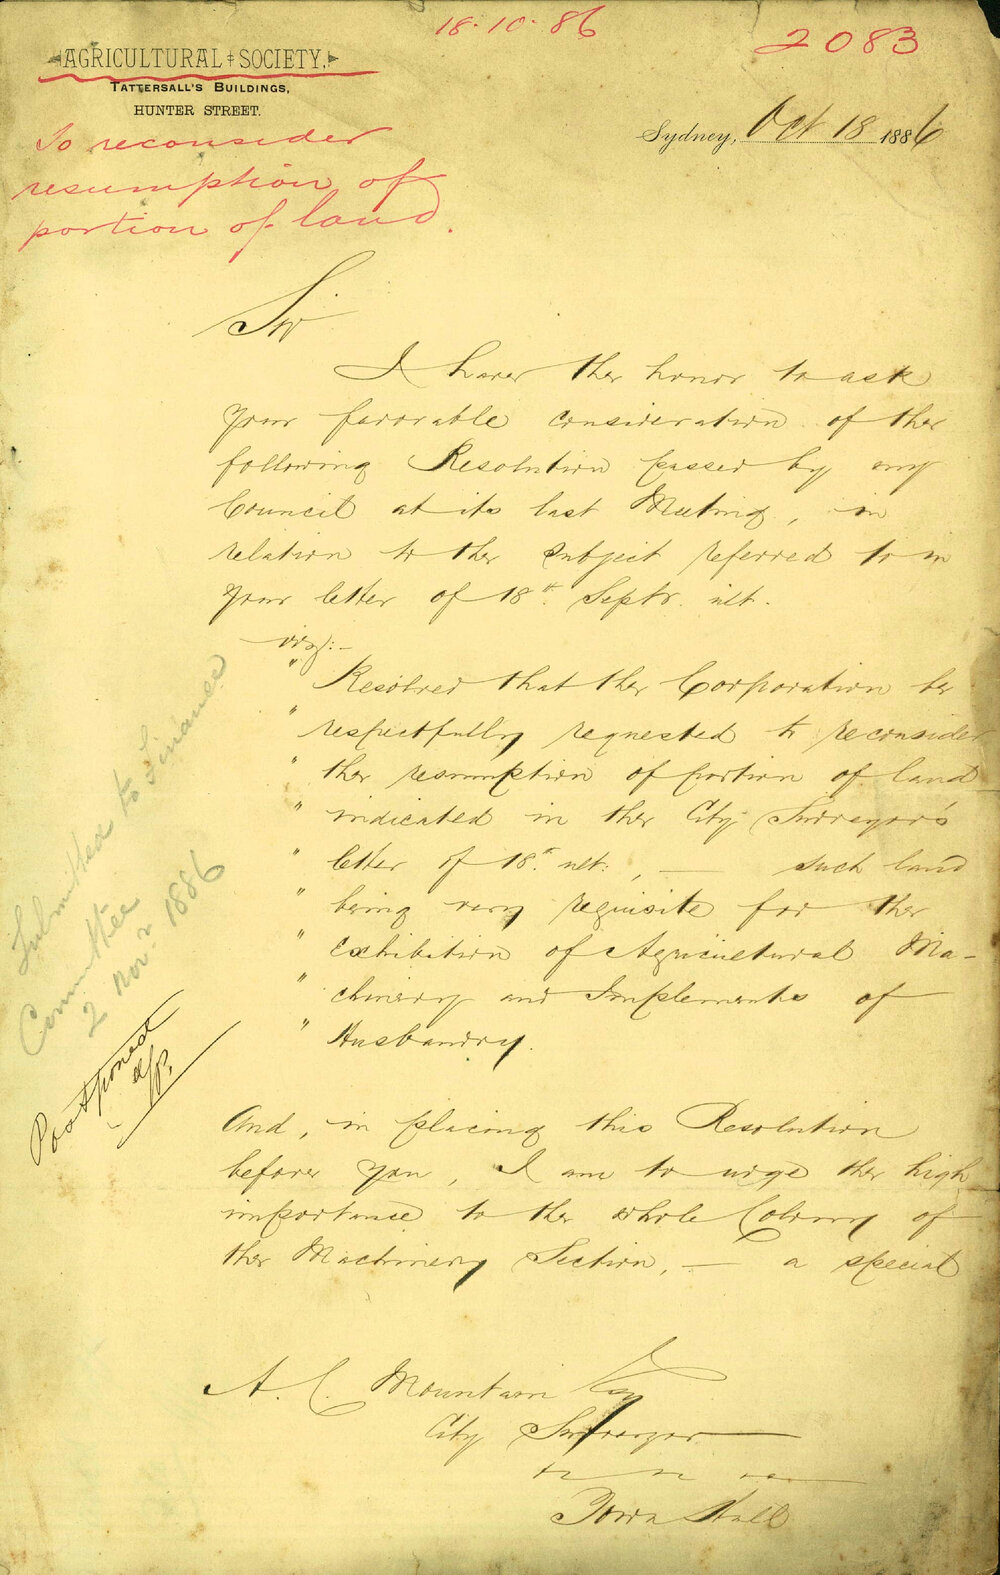 18.10.86
2083
AGRICULTURAL SOCIETY,
TATTERSALL'S BUILDINGS,
HUNTER STREET.
To reconsider
resumption of
portion of land.
Sydney, Oct 18 1886
Sir
I have the honor to ask
your favorable consideration of the
following Resolution passed by my
Council at its last Meeting, in
relation to the subject referred to in
your letter of 18th. Septr. ult.
viz:-
" Resolved that the Corporation be
" respectfully requested to reconsider
" the resumption of portion of land
" indicated in the City Surveyor's
" letter of 18th. ult:, — such land
" being very requisite for the
" exhibition of Agricultural Ma-
" chinery and Implements of
" Husbandry.
Submitted to Finance
Committee
2 Novr 1886
Postponed
And, in placing this Resolution
before you, I am to urge the high
importance to the whole Colony of
the Machinery Section, — a special
A. C. Mountain Esq
City Surveyor
Town Hall